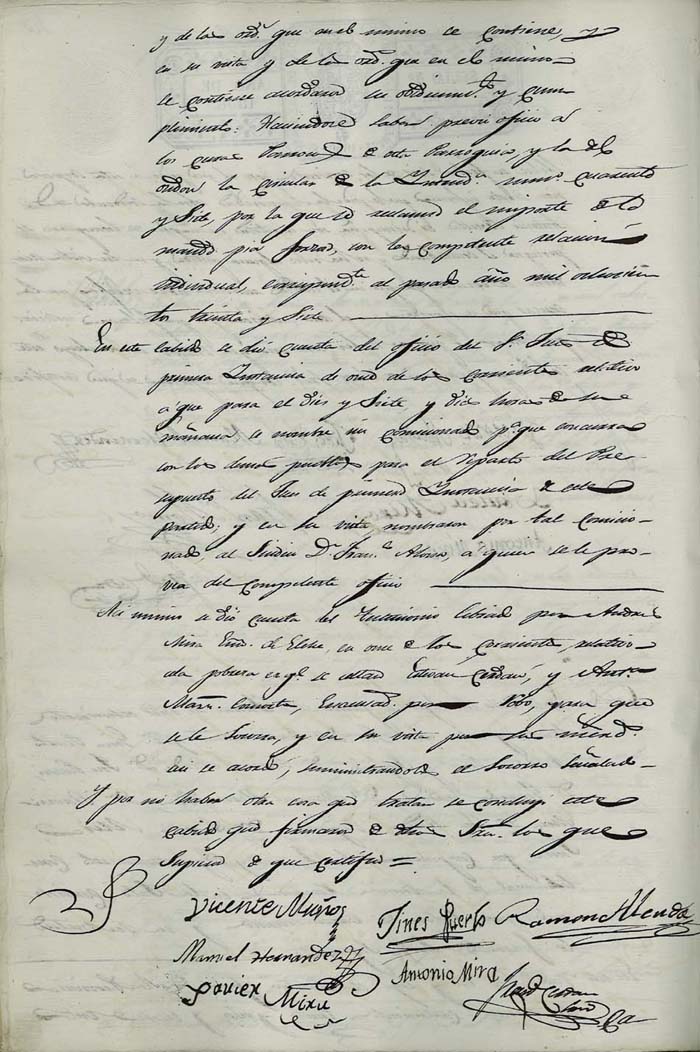 y de las ord.s que en el mismo se contiene, y
en su vista y de las ord.s que en el mismo
se contiene acordaron su obedecim.to y cum
plimiento: Haciendose saber previo oficio á
los curas de esta Parroquia, y la del
la circular de la Intend.a num.o cuarenta
y Siete, por la que se reclama el importe de lo
mandado por, con la competente relacion
individual, correspond.te al pasado año mil ochocien
tos treinta y Siete
En este cabildo se dió cuenta del oficio del S.r Juez de
primera Instancia de once de los corrientes relativo
a que para el dies y Siete y dies horas de la
mañana, se nombre un comisionado p.a que concurra
con los demas pueblos para el Reparto del Pre-
supuesto del Jues de primera Instancia de este
partido; y en su vista, nombraron por tal comicio-
nado, al Sindico D.n Fran.co Alonso, a quien se le pro-
vea del competente oficio
Asi mismo se dió cuenta del Testimonio librado por Andres
Mira Esno. de Elche, en once de los corrientes, relativo
a la pobresa en q.e se allan Estevan Cerdan, y Ant.a
Mar.a, por robo, y para que
se le Socorra, y en su vista por
asi se acordó, suministrandole el Socorro Señalado
Y por no haber otra cosa que tratar se concluyó este
cabildo que firmaron de dhos Sres. los que
Supieron de que certifico =
Vicente Muños
Jines Puerto Ramon Alenda
Manuel Hernandez
Antonio Mira
Javier Mira
Cerdan